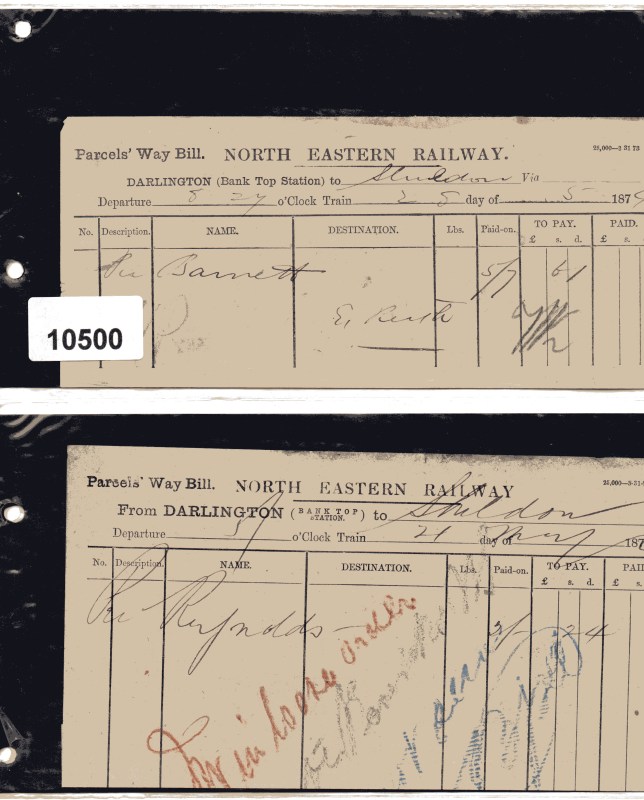 Parcels' Way Bill. NORTH EASTERN RAILWAY. 25,000—2 31 73
DARLINGTON (Bank Top Station) to Shildon Via
Departure 8 27 o'Clock Train 28 day of 5 187
No. Description. NAME. DESTINATION. Lbs. Paid-on. TO PAY. PAID.
£ s. d. £ s.
Barnett 5/7 6 1
10500
Parcels' Way Bill. NORTH EASTERN RAILWAY 25,000—
From DARLINGTON (BANK TOP STATION.) to Shildon
Departure 5 o'Clock Train 21 day of May 187
No. Description. NAME. DESTINATION. Lbs. Paid-on. TO PAY. PAID
£ s. d. £
Reynolds 2/- 2 4
in loose order